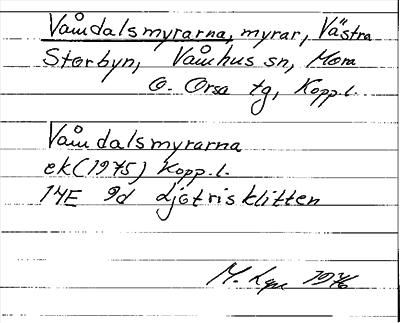 Våmdalsmyrarna, myrar, Västra
Storbyn, Våmhus sn, Mora
o. Orsa tg, Kopp.l.
Våmdalsmyrarna
ek (1975) Kopp.l.
14E 9d Djotrisklitten
M. 1976